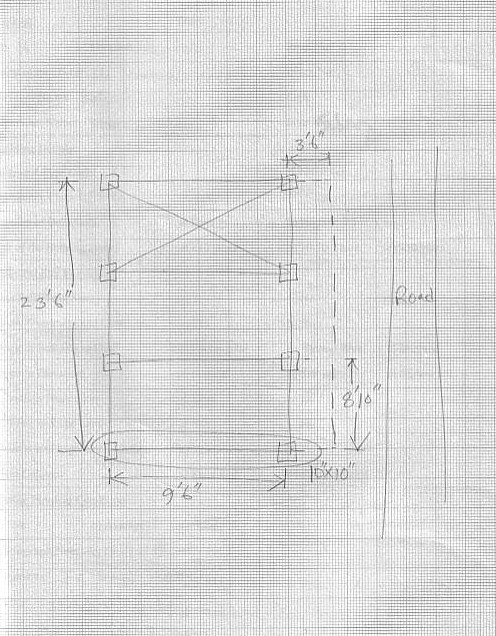 3'6"
23'6"
Road
8'10"
10"x10"
9'6"